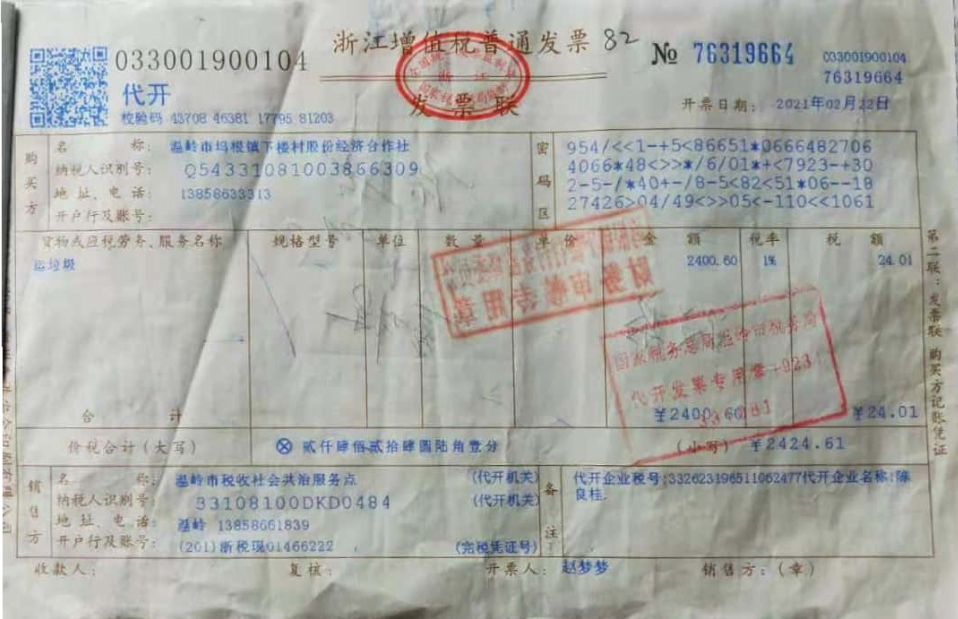 浙江增值税普通发票 82
033001900104
No 76319664
033001900104
76319664
代开
发票联
开票日期: 2021年02月22日
校验码 43708 46381 17795 81203
购买方
名 称: 温岭市坞根镇下楼村股份经济合作社
纳税人识别号: Q54331081003866309
地址、电话: 13858633313
开户行及账号:
密码区
954/<<1-+5<86651*0666482706
4066*48<>>*/6/01*+<7923-+30
2-5-/*40+-/8-5<82<51*06--18
27426>04/49<>>05<-110<<1061
货物或应税劳务、服务名称 规格型号 单位 数量 单价 金额 税率 税额
运垃圾 2400.60 1% 24.01
国家税务总局温岭市税务局
代开发票专用章
合 计 ¥2400.60 ¥24.01
价税合计(大写) ⊗ 贰仟肆佰贰拾肆圆陆角壹分 (小写) ¥2424.61
销售方
名 称: 温岭市税收社会共治服务点 (代开机关)
纳税人识别号: 33108100DKD0484 (代开机关)
地址、电话: 温岭 13858661839
开户行及账号: (201)浙税现01466222 (完税凭证号)
备注
代开企业税号:332623196511062477代开企业名称:陈
良桂.
收款人: 复核: 开票人: 赵梦梦 销售方:(章)
第二联:发票联 购买方记账凭证